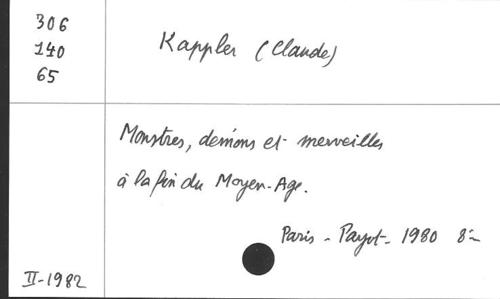 306
140
65
Kappler (Claude)
Monstres, démons et merveilles
à la fin du Moyen-Age.
Paris - Payot - 1980 8º
II-1982